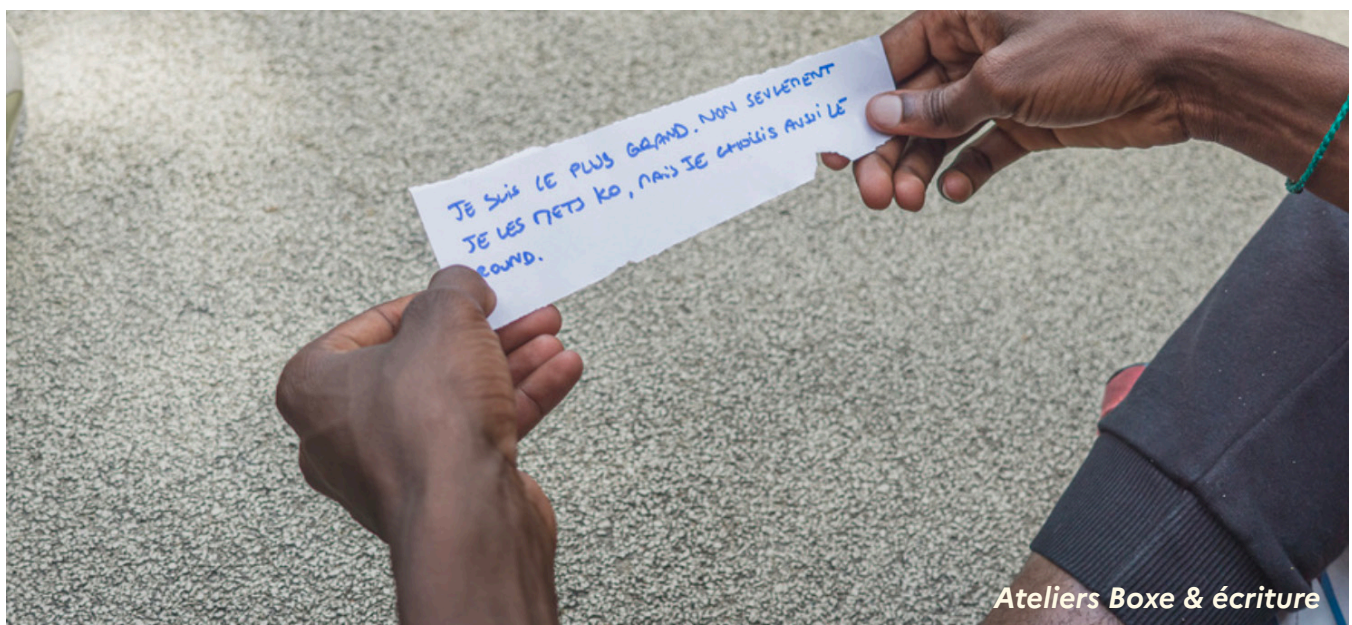 JE SUIS LE PLUS GRAND. NON SEULEMENT
JE LES METS KO, MAIS JE CHOISIS AUSSI LE
ROUND.
Ateliers Boxe & écriture